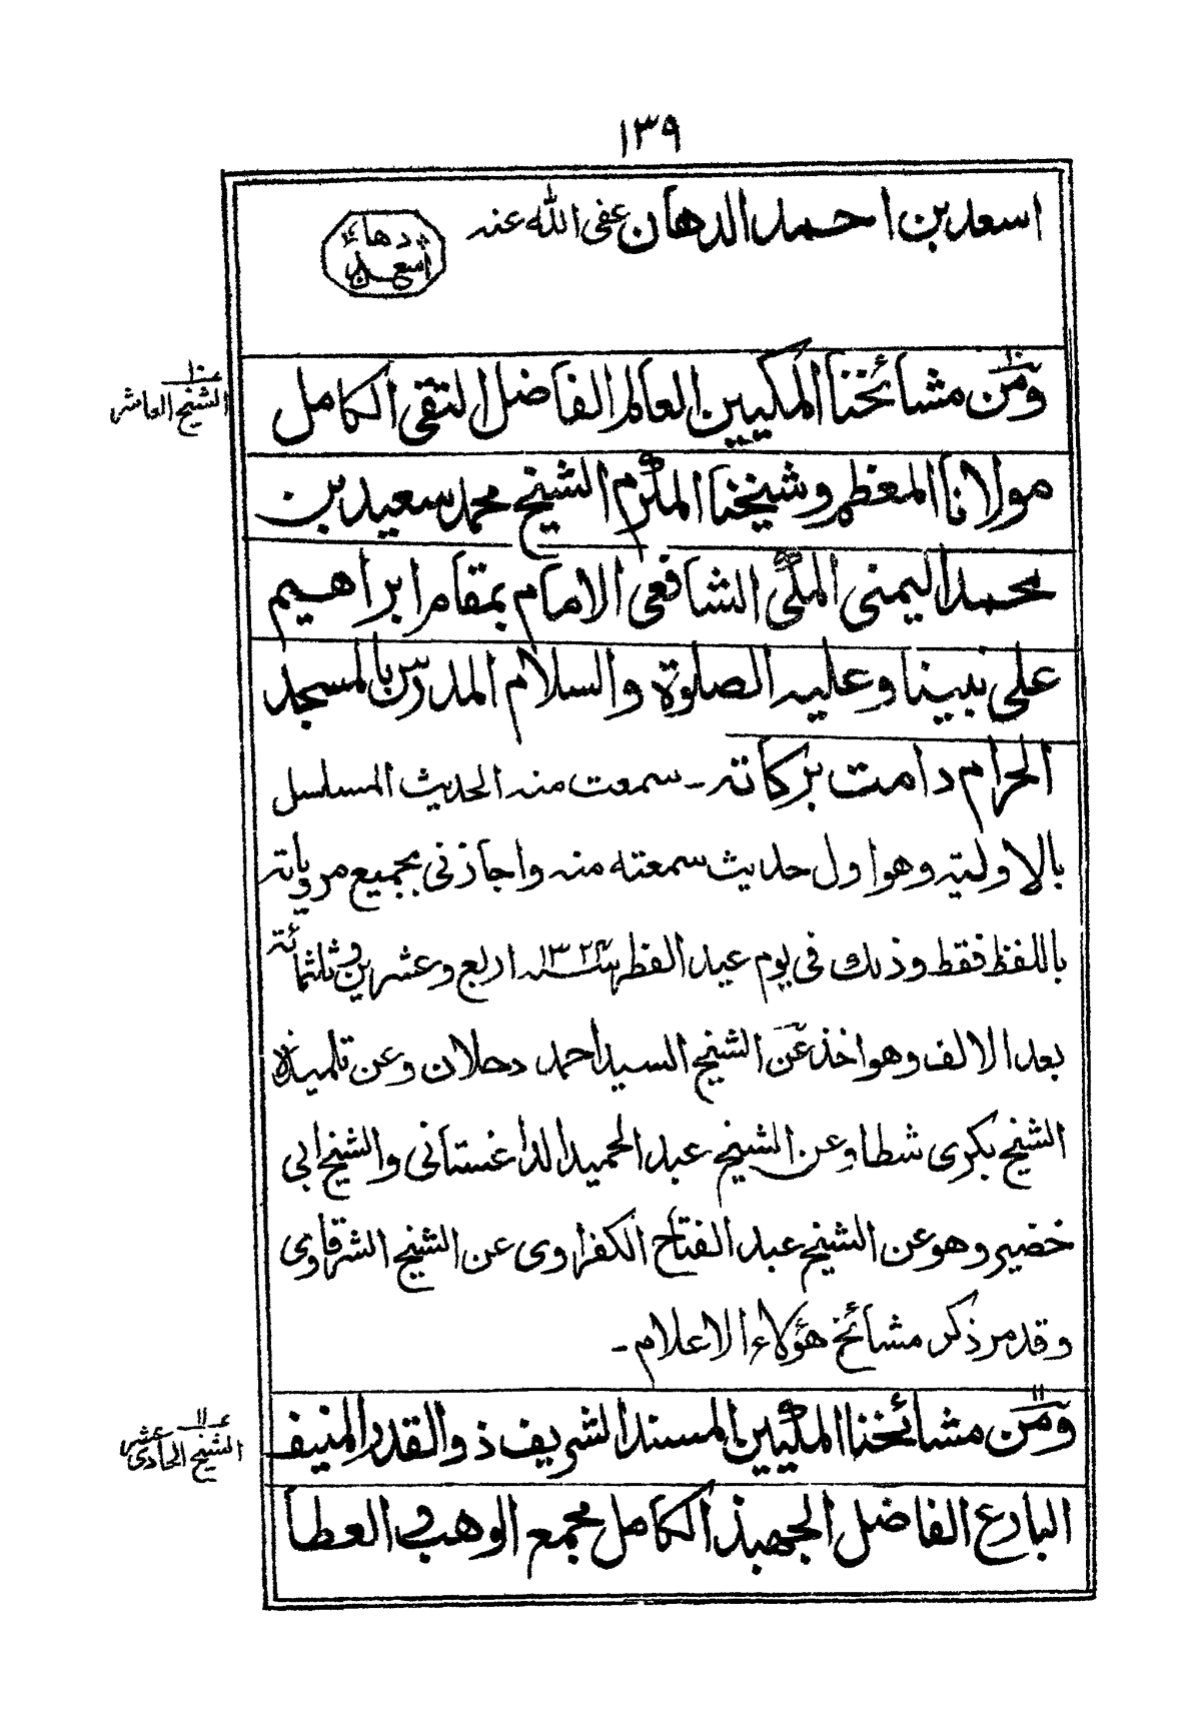 ١٣٩
اسعد بن احمد الدهان عفى الله عنه
دهان
اسعد
١٠
ومن مشائخنا المكيين العالم الفاضل التقى الكامل
١٠
الشيخ العاشر
مولانا المعظم وشيخنا المكرم الشيخ محمد سعيد بن
محمد اليمنى المكى الشافعى الامام بمقام ابراهيم
على نبينا وعليه الصلوة والسلام المدرس بالمسجد
الحرام دامت بركاته ۔ سمعت منه الحديث المسلسل
بالاولية وهو اول حديث سمعته منه واجازنى بجميع مروياته
باللفظ فقط وذلك فى يوم عيد الفطر سنة ١٣٢٤ اربع وعشرين وثلثمائة
بعد الالف وهو اخذ عن الشيخ السيد احمد دحلان وعن تلميذه
الشيخ بكرى شطا وعن الشيخ عبد الحميد الداغستانى والشيخ ابى
خضير وهو عن الشيخ عبد الفتاح الكفراوى عن الشيخ الشرقاوى
وقد مر ذكر مشائخ هؤلاء الاعلام ۔
١١
ومن مشائخنا المكيين المسند الشريف ذو القدر المنيف
١١
الشيخ الحادى عشر
البارع الفاضل الجهبذ الكامل مجمع الوهب والعطا